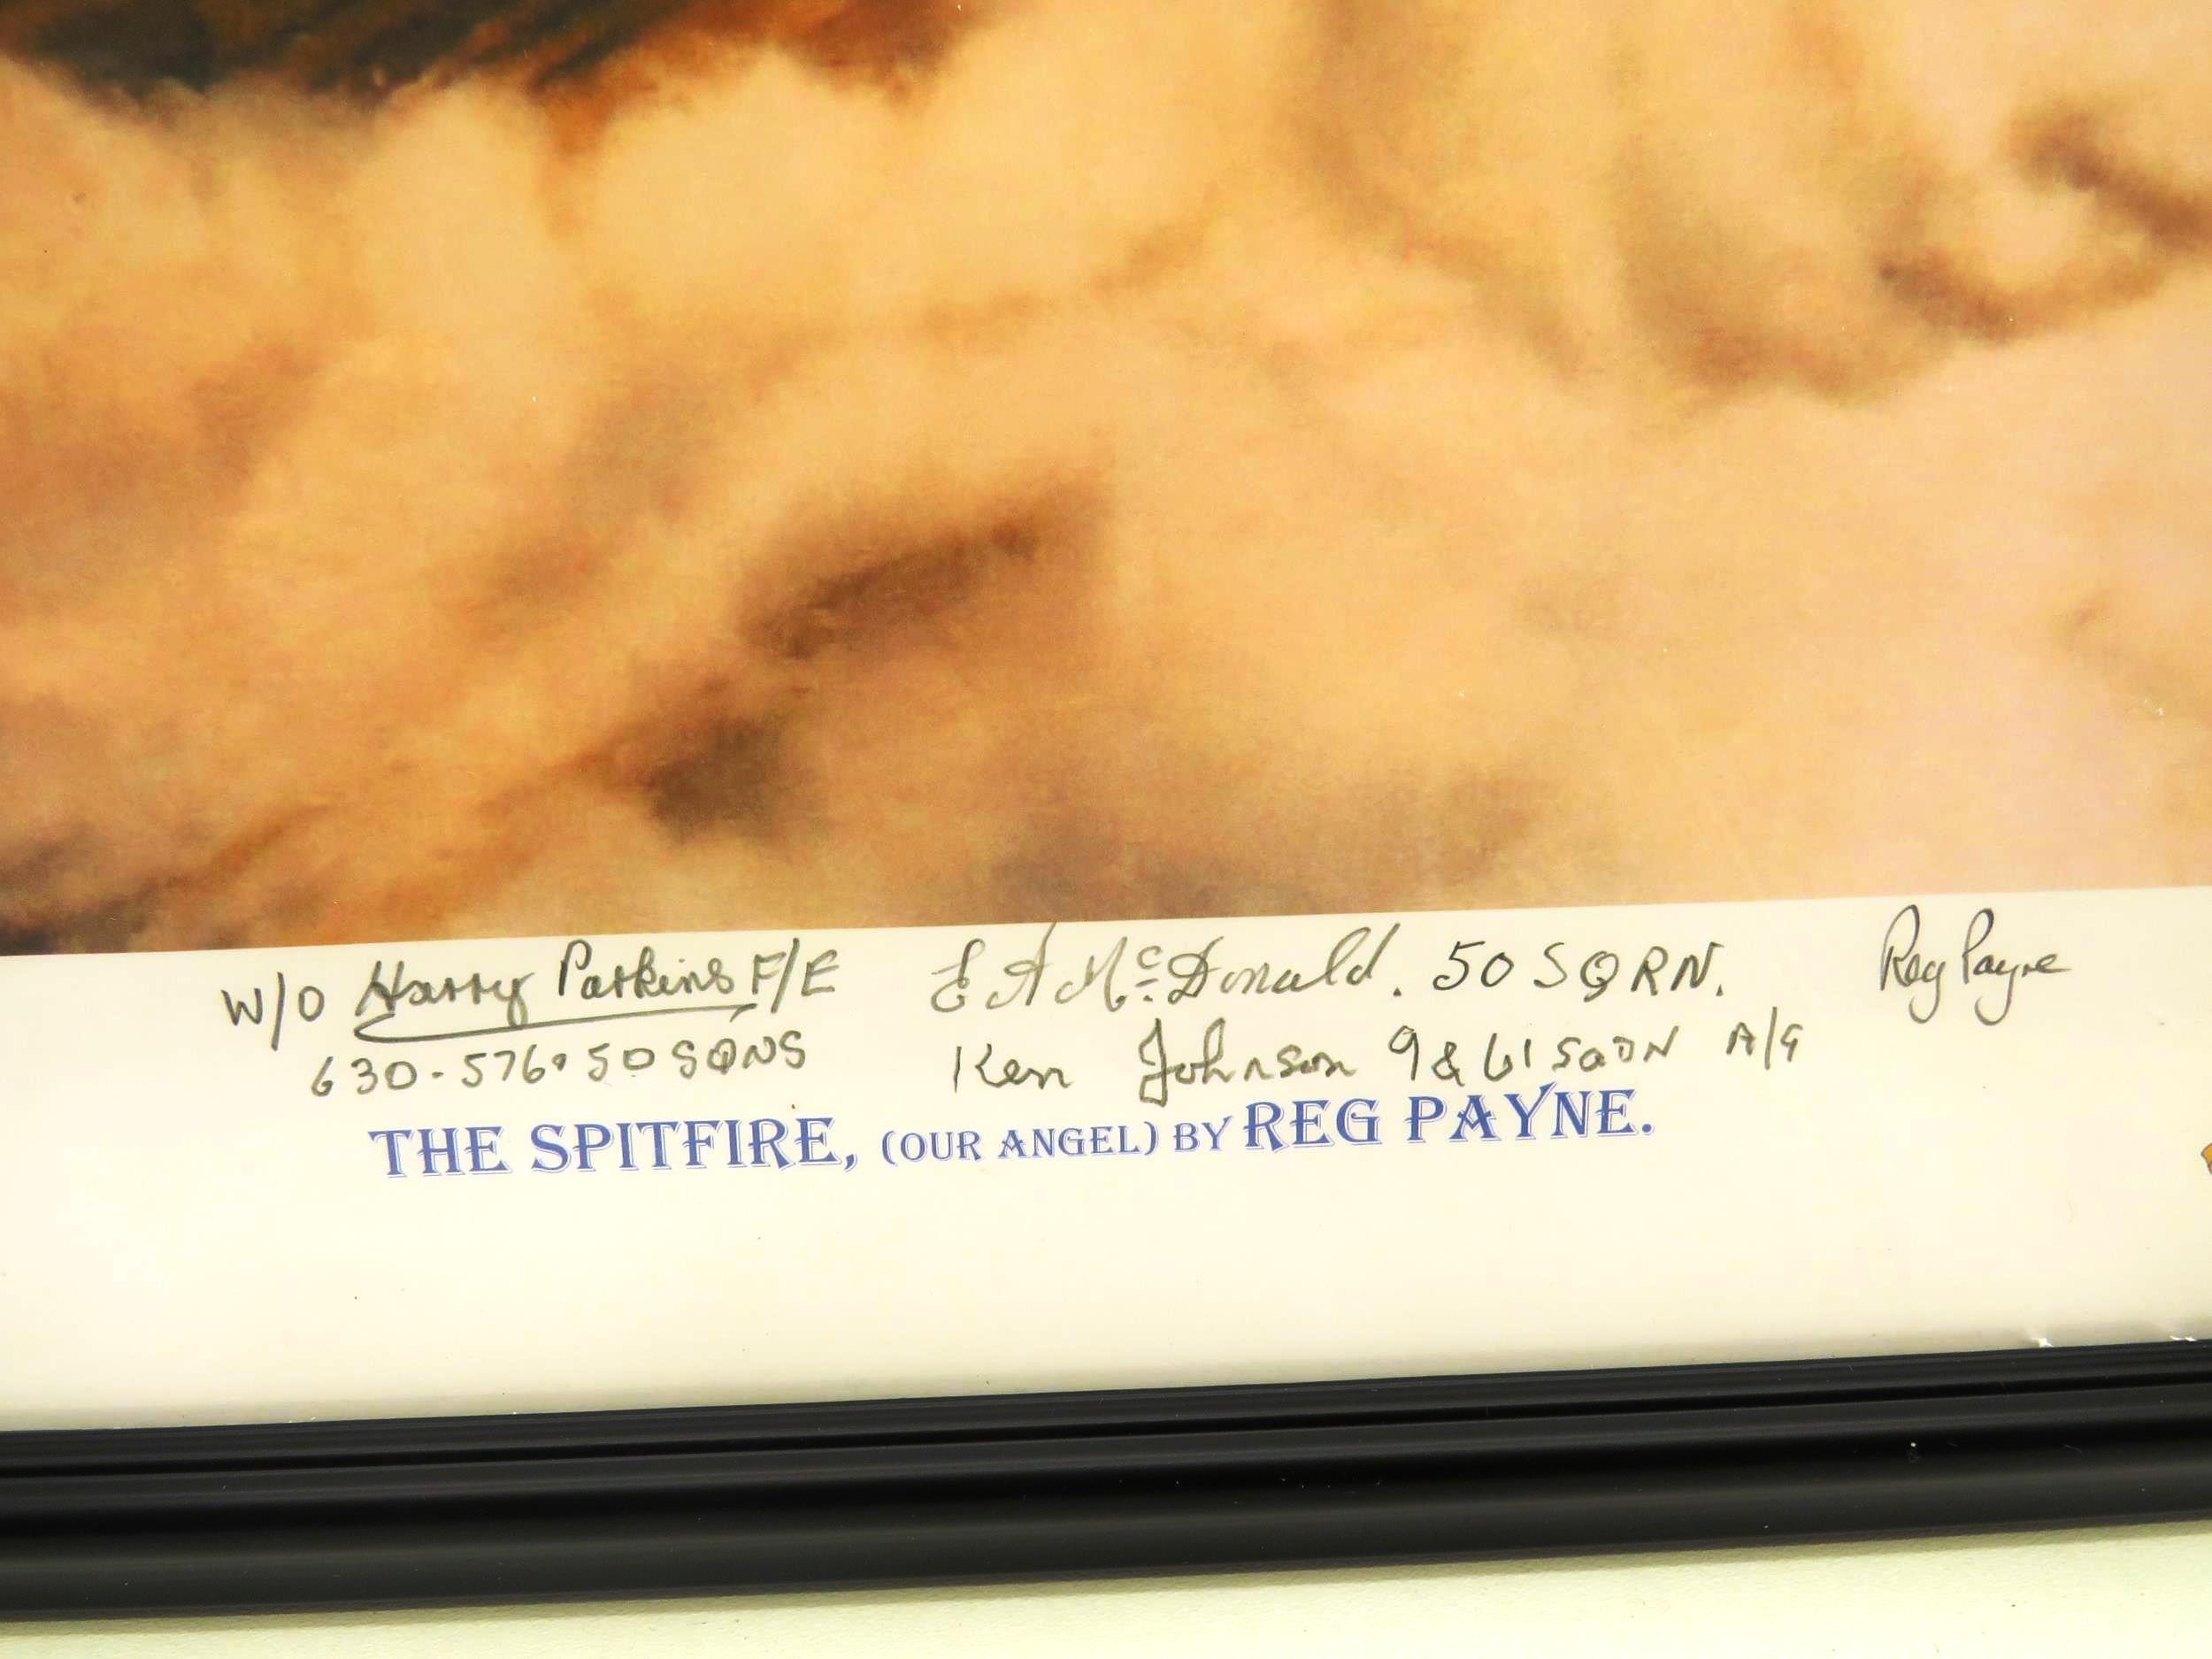 W/O Harry Parkins F/E
630-576.50 SQNS
E A McDonald. 50 SQRN.
Ken Johnson 9 & 61 SQDN A/G
Reg Payne
THE SPITFIRE, (OUR ANGEL) BY REG PAYNE.